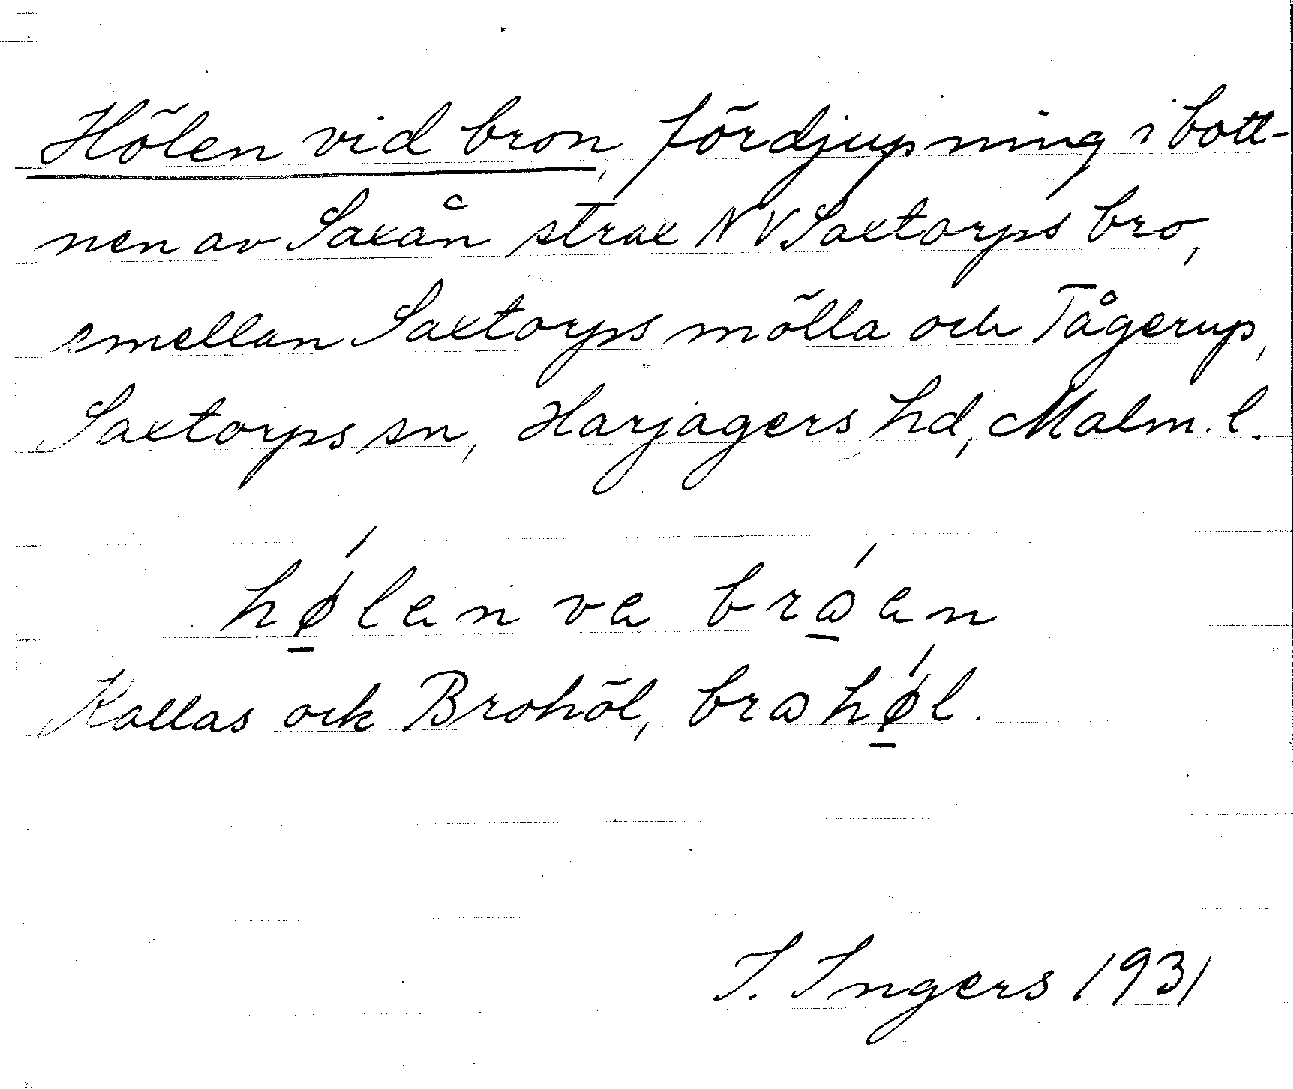 Hölen vid bron, fördjupning i bott-
nen av Saxån strax NV Saxtorps bro,
emellan Saxtorps mölla och Tågerup,
Saxtorps sn, Harjagers hd, Malm. l.
hǿ̲len ve brɷ̲́en
Kallas ock Brohöl, brɷhǿ̲l.
I. Ingers 1931